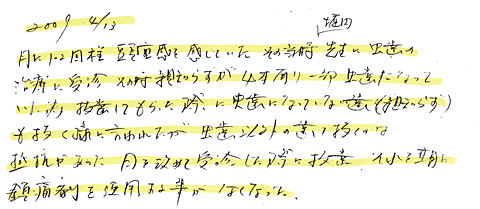 2009 4/13
堀田
月に1.2回程 頭痛感を感じていた その当時 先生に虫歯の
治療に受診 その時親知らずが4本有り一部虫歯になって
いた 抜歯してもらった際に 虫歯になっていない歯(親知らず)
も抜く様に言われたが 虫歯以外の歯を抜くのは
抵抗があった 月を改めて受診した際に抜歯 それ以来
鎮痛剤を使用する事がなくなった.